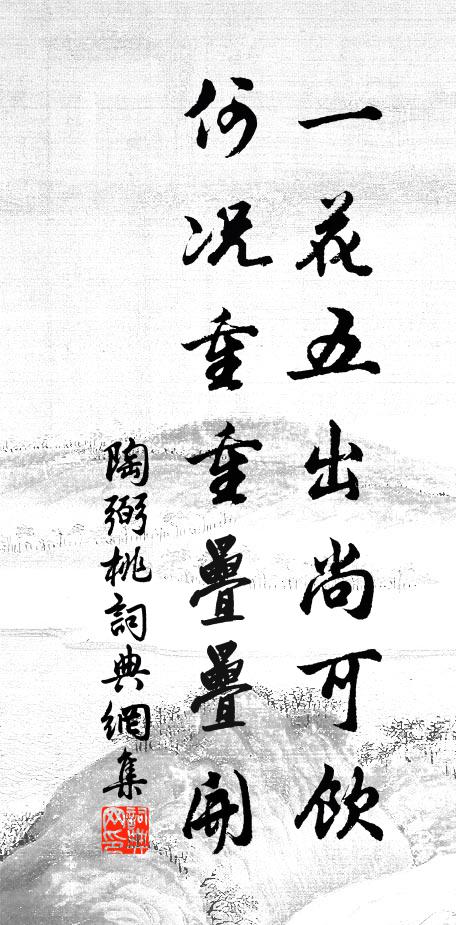 一花五出尚可飲
何况重重疊疊開
陶弼桃詞典網集